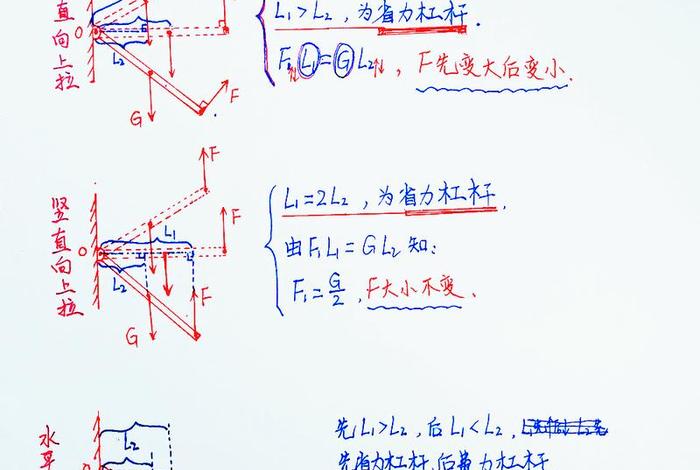 直向上拉
O
L₂
G
F
L₁>L₂，为省力杠杆.
F₁L₁=GL₂，F先变大后变小.
竖直向上拉
O
L₁
L₂
G
F
F
F
L₁=2L₂，为省力杠杆.
由F₁L₁=GL₂知:
F₁=G/2，F大小不变、
水平
L₂
先L₁>L₂，后L₁<L₂，
先省力杠杆，后费力杠杆